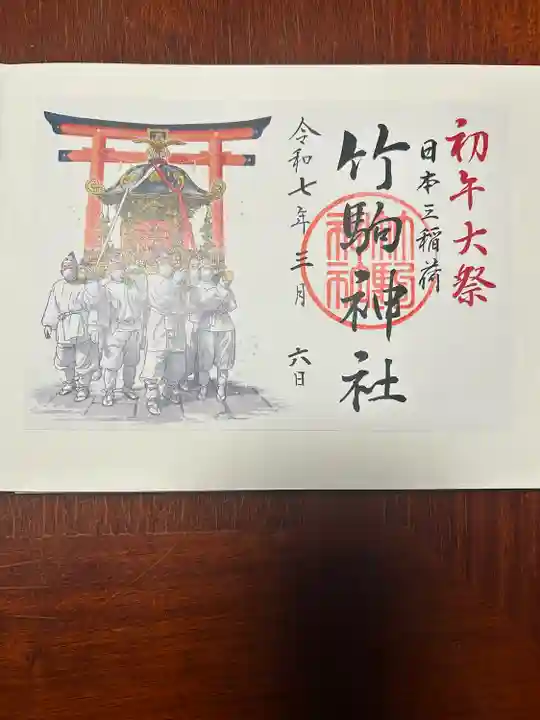 初午大祭
日本三稲荷
竹駒神社
令和七年三月 六日
竹駒神社